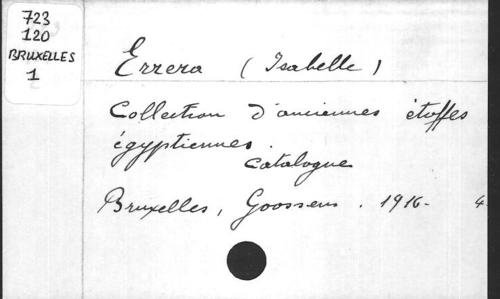 723
120
BRUXELLES
1
Errera (Isabelle)
Collection d'anciennes étoffes
égyptiennes.
Catalogue
Bruxelles, Goossens. 1916- 4